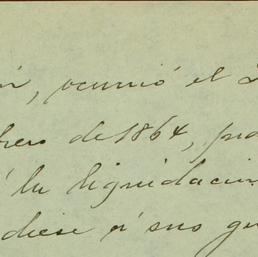 ocurrió el
de 1864,
á la liquidacion
diese á sus